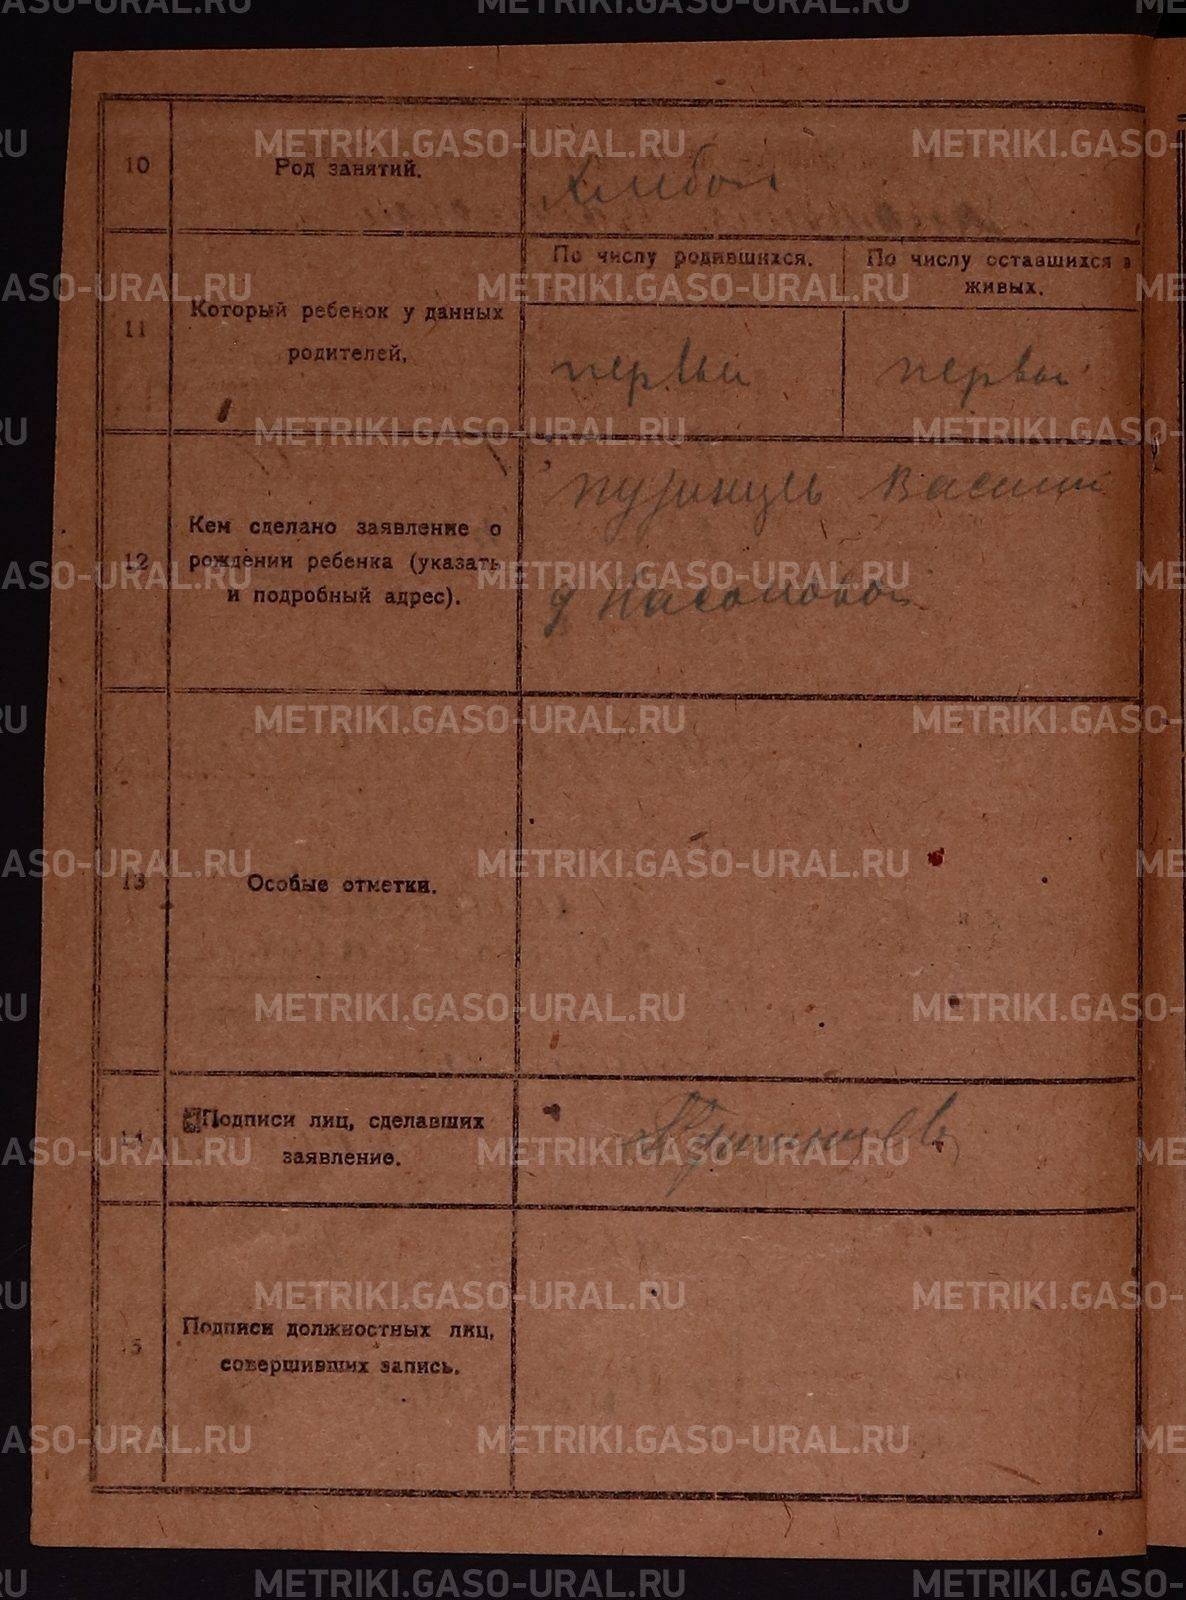 10
Род занятий.
Хлебоп
11
Который ребенок у данных
родителей.
По числу родившихся.
По числу оставшихся в
живых.
первы
первы
12
Кем сделано заявление о
рождении ребенка (указать
и подробный адрес).
Василий
13
Особые отметки.
14
Подписи лиц, сделавших
заявление.
15
Подписи должностных лиц,
совершивших запись.
METRIKI.GASO-URAL.RU